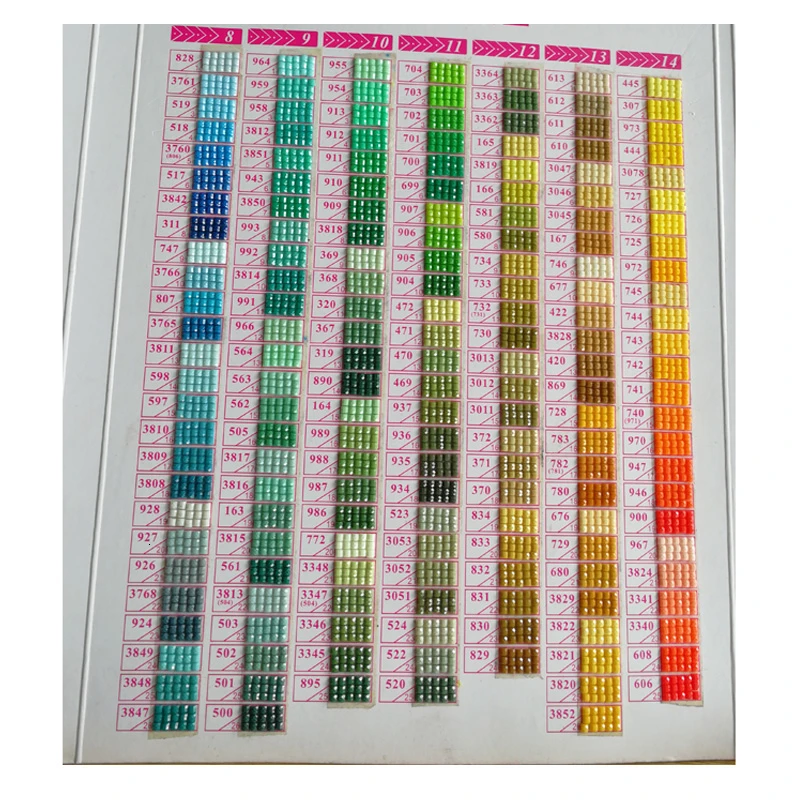 8
828
3761
519
518
3760
(806)
517
3842
311
747
3766
807
3765
3811
598
597
3810
3809
3808
928
927
926
3768
924
3849
3848
3847
9
964
959
958
3812
3851
943
3850
993
992
3814
991
966
564
563
562
505
3817
3816
163
3815
561
3813
(504)
503
502
501
500
10
955
954
913
912
911
910
909
3818
369
368
320
367
319
890
164
989
988
987
986
772
3348
3347
(504)
3346
3345
895
11
704
703
702
701
700
699
907
906
905
904
472
471
470
469
937
936
935
934
523
3053
3052
3051
524
522
520
12
3364
3363
3362
165
3819
166
581
580
734
733
732
(731)
730
3013
3012
3011
372
371
370
834
833
832
831
830
829
13
613
612
611
610
3047
3046
3045
167
746
677
422
3828
420
869
728
783
782
(781)
780
676
729
680
3829
3822
3821
3820
3852
14
445
307
973
444
3078
727
726
725
972
745
744
743
742
741
740
(971)
970
947
946
900
967
3824
3341
3340
608
606